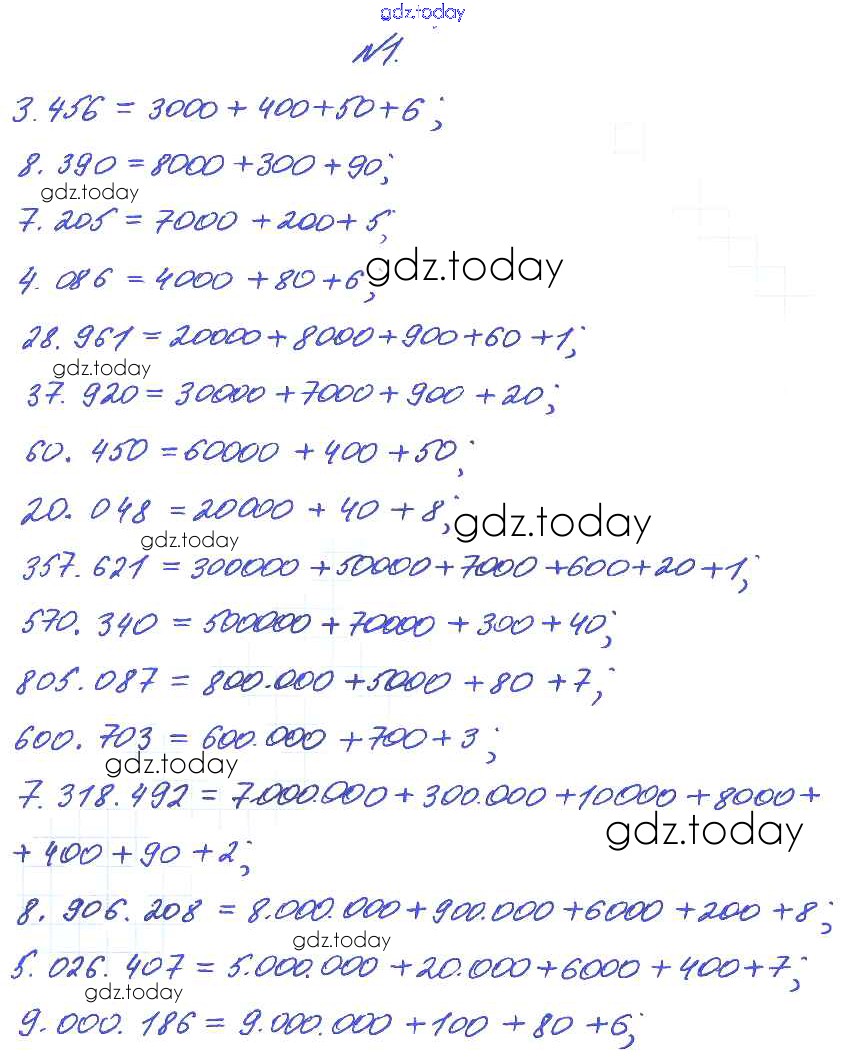 gdz.today
№1.
3.456 = 3000 + 400+50+6;
8. 390 = 8000 +300 +90;
gdz.today
7. 205 = 7000 +200+ 5;
4. 086 = 4000 +80 +6;
gdz.today
28. 961 = 20000+8000+900+60 +1;
gdz.today
37. 920 = 30000 +7000+ 900 +20;
60. 450 = 60000 +400 +50;
20. 048 = 20000 + 40 + 8;
gdz.today
gdz.today
357. 621 = 300000 +50000+7000 +600+20 +1;
570. 340 = 500000 +70000 +300 +40;
805.087 = 800.000 +5000 +80 +7;
600. 703 = 600.000 +700+3;
gdz.today
7. 318.492 = 7.000.000+300.000 +10000 +8000+
gdz.today
+ 400 + 90 +2;
8. 906. 208 = 8.000.000+900.000 +6000 +200 +8;
gdz.today
5. 026. 407 = 5.000.000 +20.000+6000 + 400+7;
gdz.today
9.000. 186 = 9.000.000 +100 +80 +6;